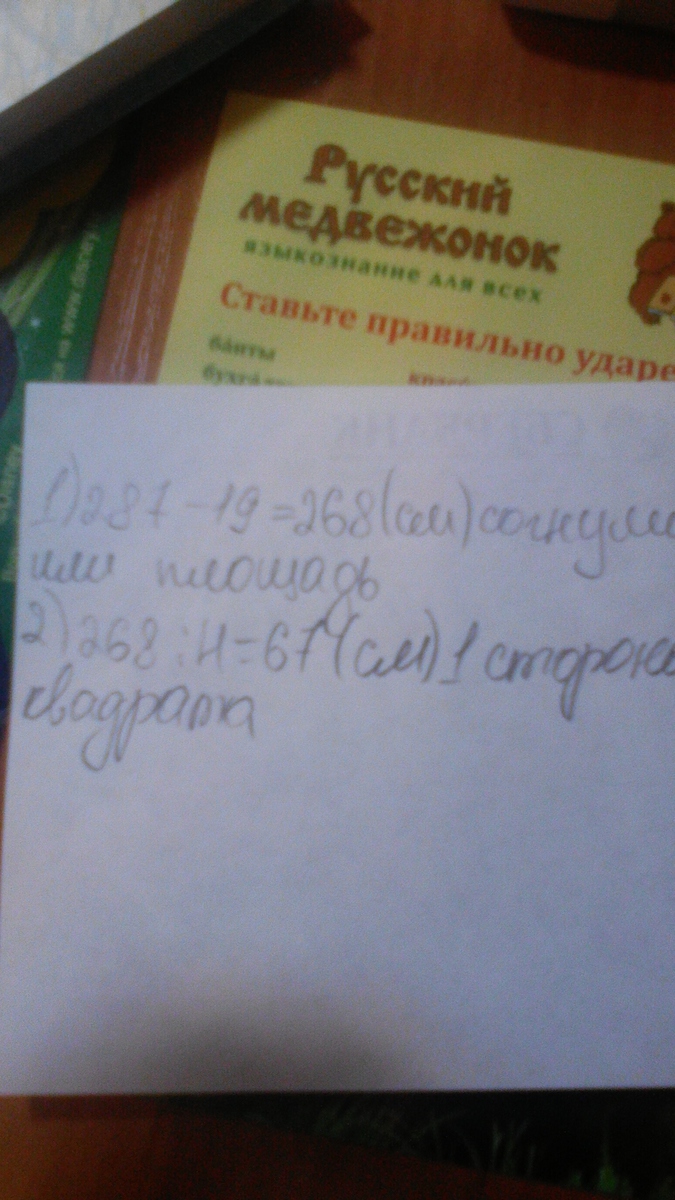 Русский
медвежонок
языкознание для всех
Ставьте правильно ударе
ба́нты
1) 287 - 19 = 268 (см) согнули
или площадь
2) 268 : 4 = 67 (см) 1 сторона
квадрата